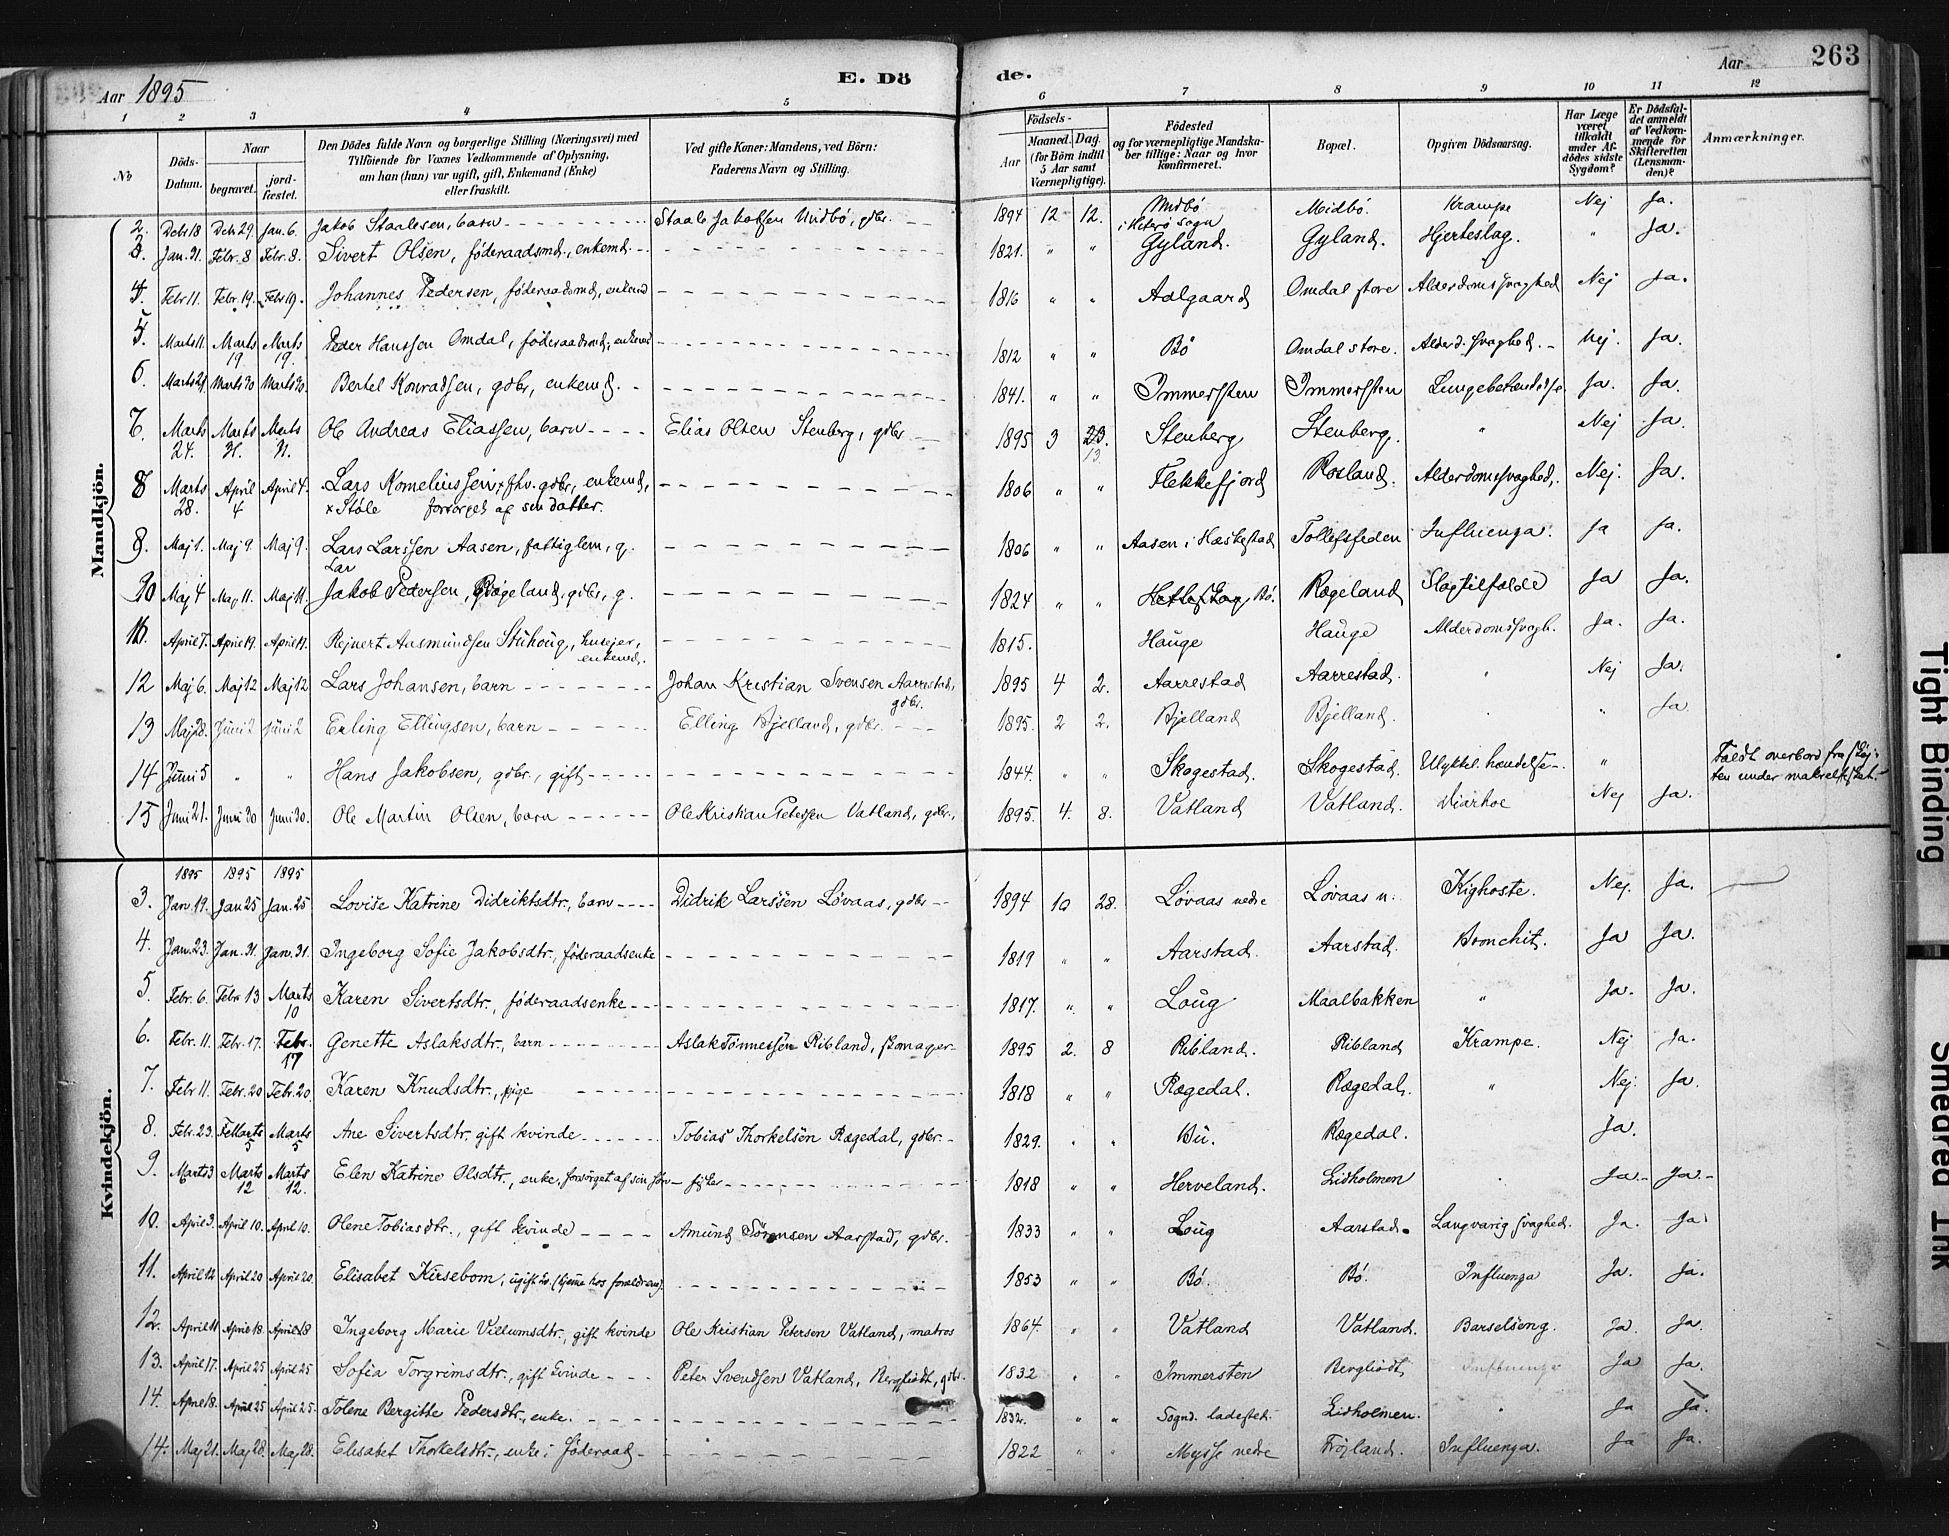 Aar 1895 E. Dö de. Aar 263
1 2 3 4 5 6 7 8 9 10 11 12
No Döds-Datum. Naar begravet. jordfæstet. Den Dödes fulde Navn og borgerlige Stilling (Næringsvei) med Tilföiende for Voxnes Vedkommende af Oplysning, om han (hun) var ugift, gift, Enkemand (Enke) eller fraskilt. Ved gifte Koner: Mandens, ved Börn: Faderens Navn og Stilling. Födsels- Aar Maaned. Dag. (for Börn indtil 5 Aar samt Værnepligtige). Födested og for værnepligtige Mandskaber tillige: Naar og hvor konfirmeret. Bopæl. Opgiven Dödsaarsag. Har Læge været tilkaldt under Afdödes sidste Sygdom? Er Dödsfaldet anmeldt af Vedkommende for Skifteretten (Lensmanden)? Anmærkninger.
Mandkjön.
2. Dcbr 18 Dcbr 29. Jan. 6. Jakob Staalesen, barn Staale Jakobsen Midbö, gdbr. 1894 12 12. Midbö i Hiterö sogn Midbö. Krampe Nej Ja.
3. Jan. 31. Febr. 8 Febr. 8. Sivert Olsen, föderaadsmd., enkemd. 1821. " " Gyland. Gyland. Hjerteslag. " Ja.
4. Febr 11. Febr. 19. Febr 19. Johannes Pedersen, föderaadsmd, enkemd 1816 " " Aalgaard Omdal store Alderdomssvaghed Nej Ja.
5. Marts 11. Marts 19. Marts 19. Peder Hanssen Omdal, föderaadsmd, enkemd 1812 " " Bö Omdal store. Alderd. svaghed. Nej. Ja.
6. Marts 21. Marts 30 Marts 30. Bertel Konradsen, gdbr, enkemd. 1841. " " Immersten Immersten Lungebetændelse Ja. Ja.
7. Marts 24. Marts 31. Marts 31. Ole Andreas Eliassen, barn Elias Olsen Stenberg, gdbr 1895 3 23. 13. Stenberg Stenberg. " Nej Ja.
8 Marts 28. April 4 April 4. Lars Korneliussen x fhv. gdbr, enkemd, 1806 " " Flekkefjord Rosland. Alderdomssvaghed. Nej. Ja.
x Støle forsörget af sin datter.
9. Maj 1. Maj 9. Maj 9. Lars Larssen Aasen, fattiglem, g. 1806 " " Aasen i Hæskestad Tollefsfeden Influenza. Ja Ja.
Lar
10 Maj 4 Maj 11. Maj 11. Jakob Pedersen, Rægeland, gdbr, g. 1824 " " Bö. Rægeland Slagtilfælde Ja Ja.
11. April 7. April 19. April 19. Rejnert Aasmundsen Stuhoug, husejer, enkemd. 1815. Hauge Hauge Alderdomssvagh. Ja. Ja.
12 Maj 6. Maj 12 Maj 12 Lars Johansen, barn Johan Kristian Svensen Aarrestad, gdbr. 1895 4 2. Aarrestad Aarrestad. " Nej Ja.
13 Maj 28. Juni 2 Juni 2 Erling Ellingsen, barn Elling Bjelland, gdbr. 1895. 2 2. Bjelland Bjelland. " " Ja
14 Juni 5 " " Hans Jakobsen, gdbr., gift 1844. " " Skogestad. Skogestad. Ulykkel. hændelse " Faldt overbord fra
ten under makrelfisket.
15 Juni 21. Juni 30 Juni 30. Ole Martin Olsen, barn Ole Kristian Petersen Vatland, gdbr., 1895. 4. 8. Vatland Vatland. Diarhoe Nej Ja.
Kvindekjön.
1895 1895 1895
3. Jan. 19. Jan 25 Jan. 25 Lovise Katrine Didriktsdtr., barn Didrik Larssen Lövaas, gdbr 1894 10 28. Lövaas nedre Lövaas n. Kighoste. Nej. Ja.
4. Jan. 23. Jan. 31. Jan. 31. Ingeborg Sofie Jakobsdtr., föderaadsenke 1819 " " Aarstad. Aarstad. Bronchit. Ja Ja.
5. Febr. 6. Febr 13 Marts 10 Karen Sivertsdtr., föderaadsenke 1817. " " Loug Maalbakken " Ja. Ja.
6. Febr. 11. Febr. 17. Febr. 17 Genette Aslaksdtr., barn Aslak Tönnessen Ribland, skomager 1895 2. 8 Ribland. Ribland Krampe. Nej Ja.
7. Febr 11. Febr. 20 Febr. 20. Karen Knudsdtr., pige 1818 " " Rægedal. Rægedal. " Nej. Ja.
8. Febr. 23. Marts 5 Marts 5 Ane Sivertsdtr. gift kvinde Tobias Thorkelsen Rægedal, gdbr. 1829. " " Bu. Rægedal. Ja.
9. Marts 3 Marts 12 Marts 12. Elen Katrine Olsdtr., enke, forsörget af sin sön 1818 " " Herveland. Lidholmen " Ja. Ja.
10. April 3. April 10. April 10. Olene Tobiasdtr., gift kvinde Amund Sörensen Aarstad, gdbr. 1833 " " Loug Aarstad. Langvarig svaghed. Ja. Ja
11. April 12 April 20 April 20. Elisabet Kirsebom, ugift (hjemme hos forældrene). 1853 " " Bö. Bö. Influenza Ja. Ja.
12. April 11 April 18. April 18 Ingeborg Marie Villumsdtr., gift kvinde Ole Kristian Petersen Vatland, matros 1864. " " Vatland Vatland. Barselseng. Ja. Ja.
13. April 17. April 25 April 25 Sofia Torgrimsdtr., gift kvinde Peter Svendsen Vatland, Bergliodt, gdbr. 1832 " " Immersten Bergliodt Influenza Ja Ja.
14. April 18. April 25 April 25. Tolene Bergitte Pedersdtr., enke. 1832. " " Sognd. ladested. Lidholmen. " Ja Ja.
14. Maj 21. Maj 28. Maj 28. Elisabet Thorkelsdtr., enke i föderaad 1822 " " Mysse nedre Fröjland. Influenza. Ja Ja.
Tight Binding
Smeared Ink